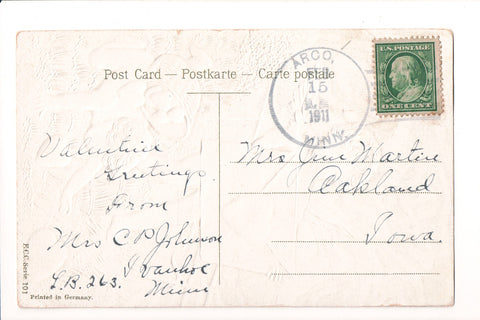 Post Card — Postkarte — Carte postale
ARCO,
FEB
15
1911
MINN.
U.S. POSTAGE
ONE CENT
Valentine
Greetings
From
Mrs C P Johnson
L.B. 263. Ivanhoe
Minn
Mrs Martin
Oakland
Iowa.
E.C.C. Serie 101
Printed in Germany.